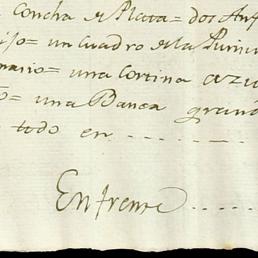 Concha de Plata = dos Anf
ijo = un Cuadro de la Puris
nario = una Cortina azu
o = una Banca grand
todo en - - - - - - -
Enfrente . . . . .